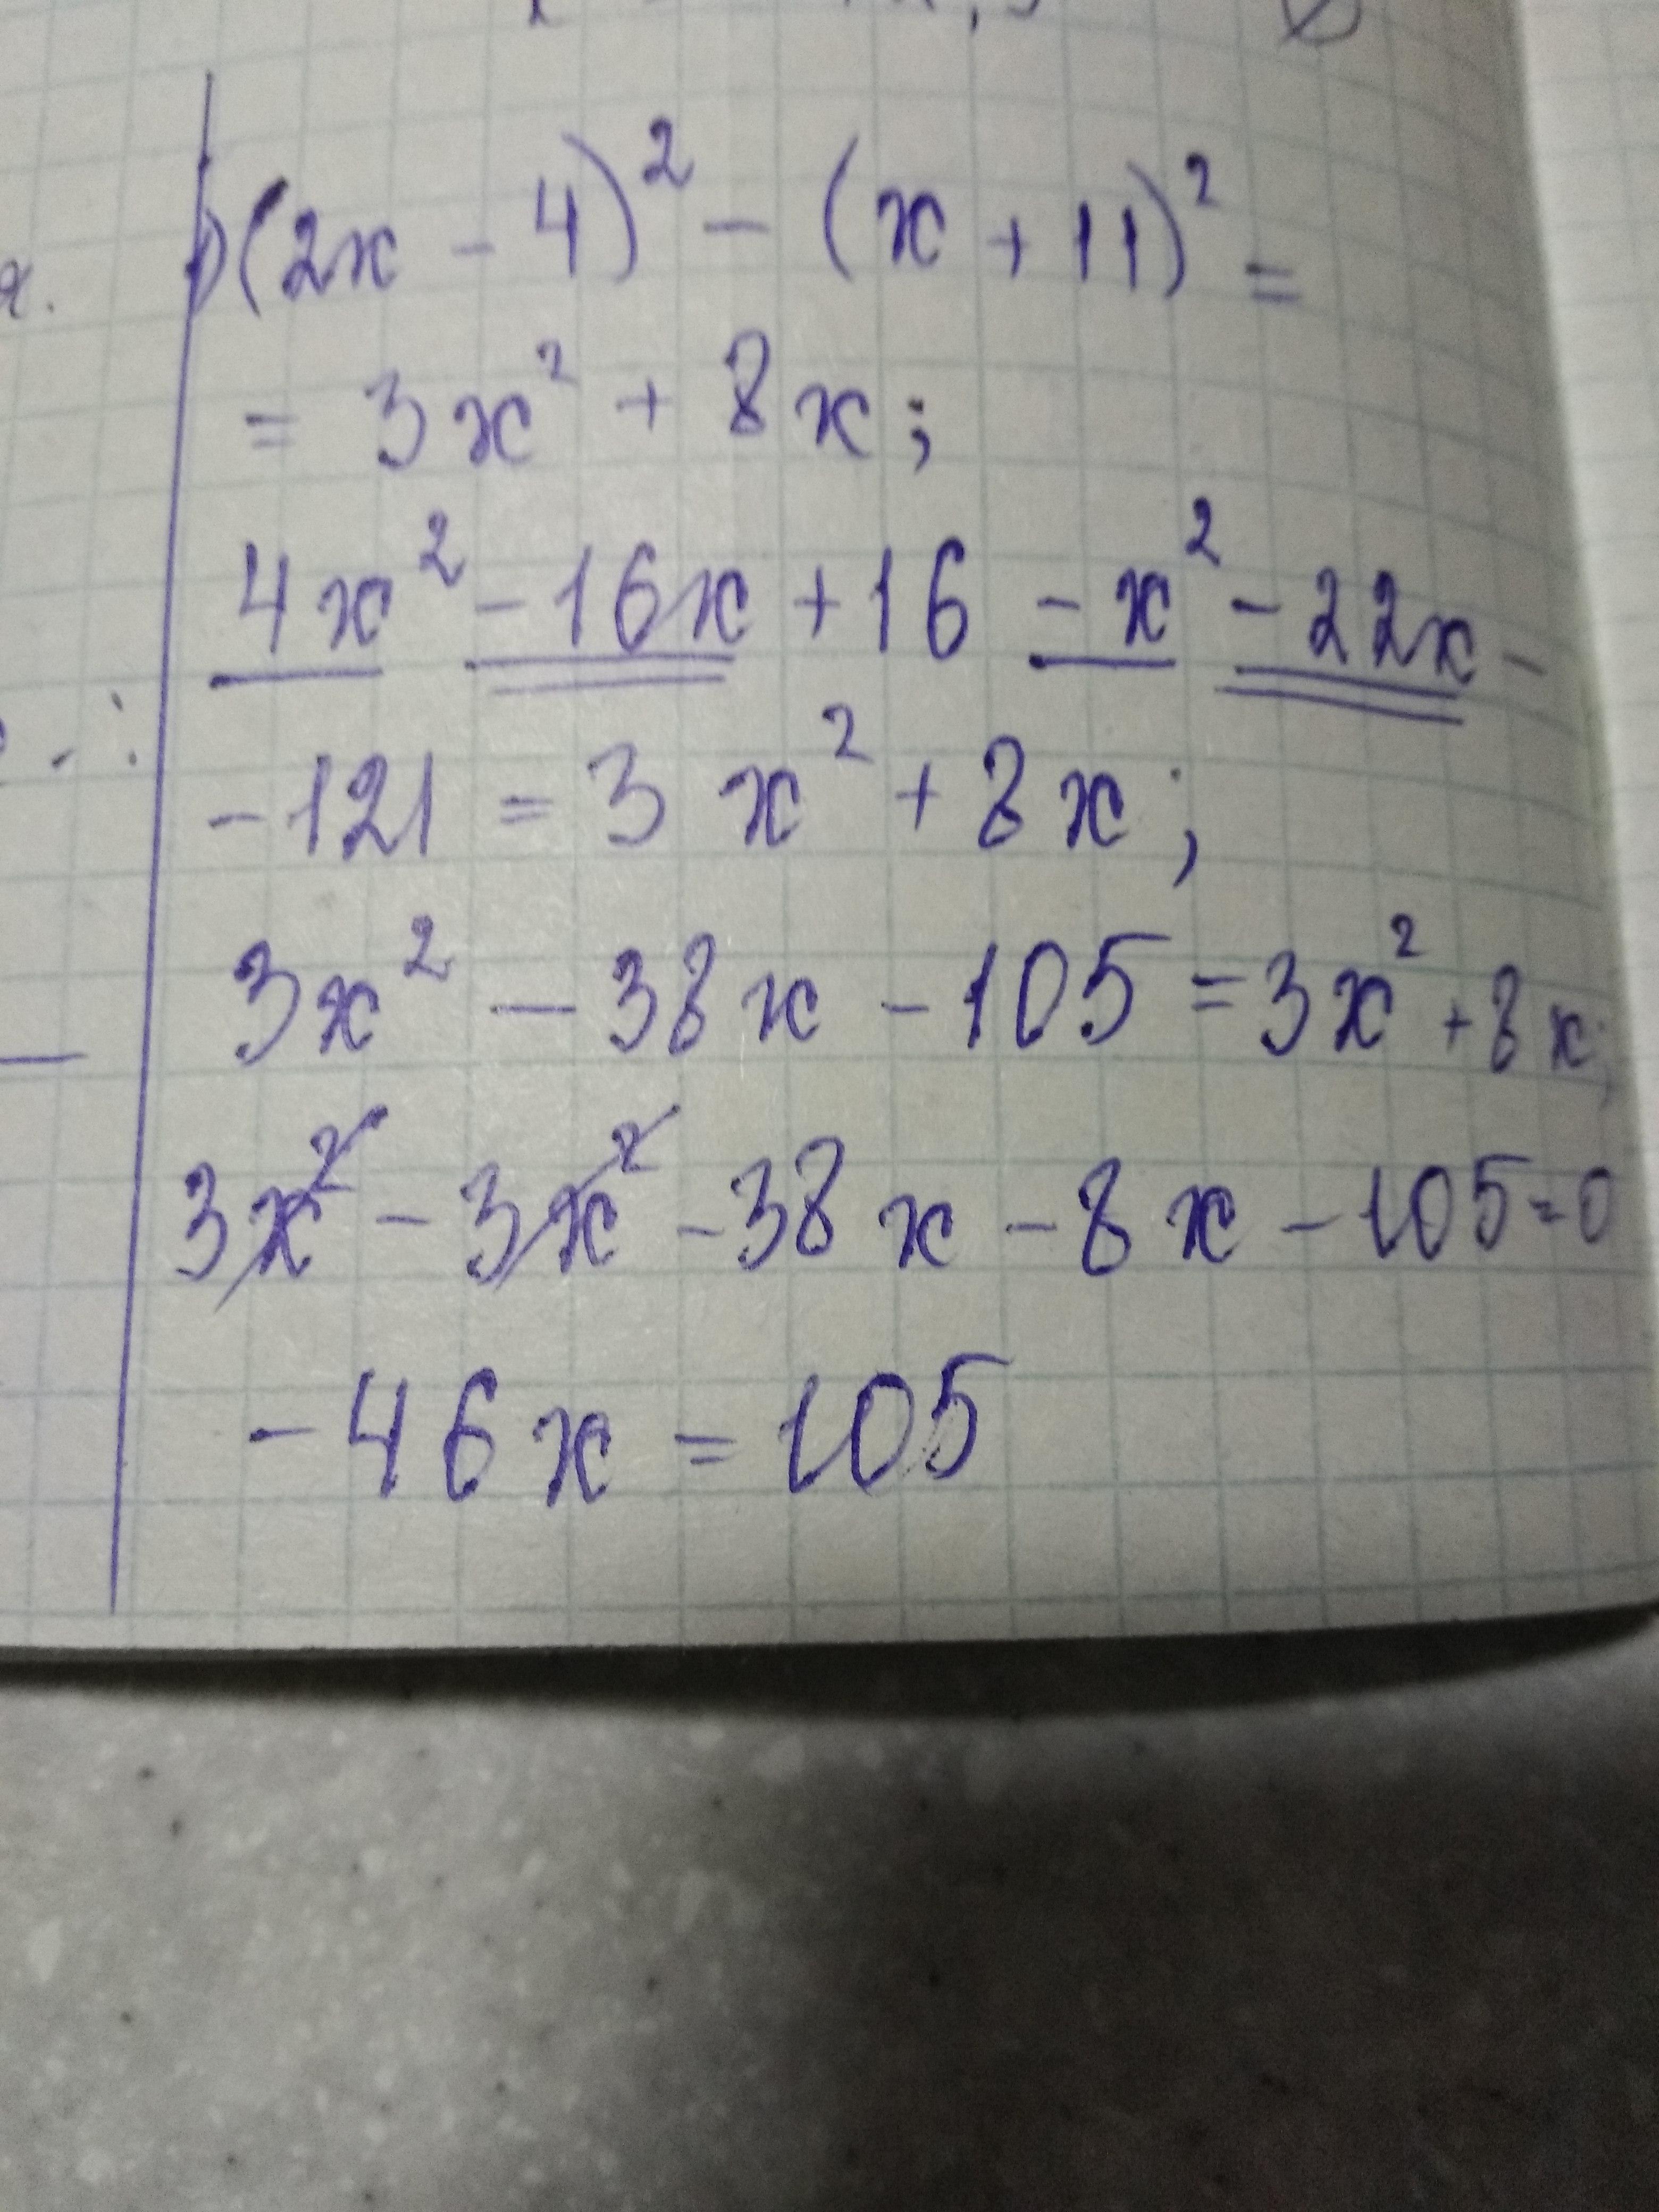 (2x - 4)² - (x + 11)² =
= 3x² + 8x;
4x² - 16x + 16 - x² - 22x -
- 121 = 3x² + 8x;
3x² - 38x - 105 = 3x² + 8x;
3x² - 3x² - 38x - 8x - 105 = 0
- 46x = 105